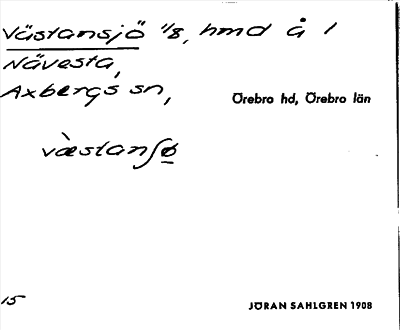 Västansjö 1/8, hmd å 1
Nävesta,
Axbergs sn,
Örebro hd, Örebro län
væ̀stanʃø̲
15
JÖRAN SAHLGREN 1908